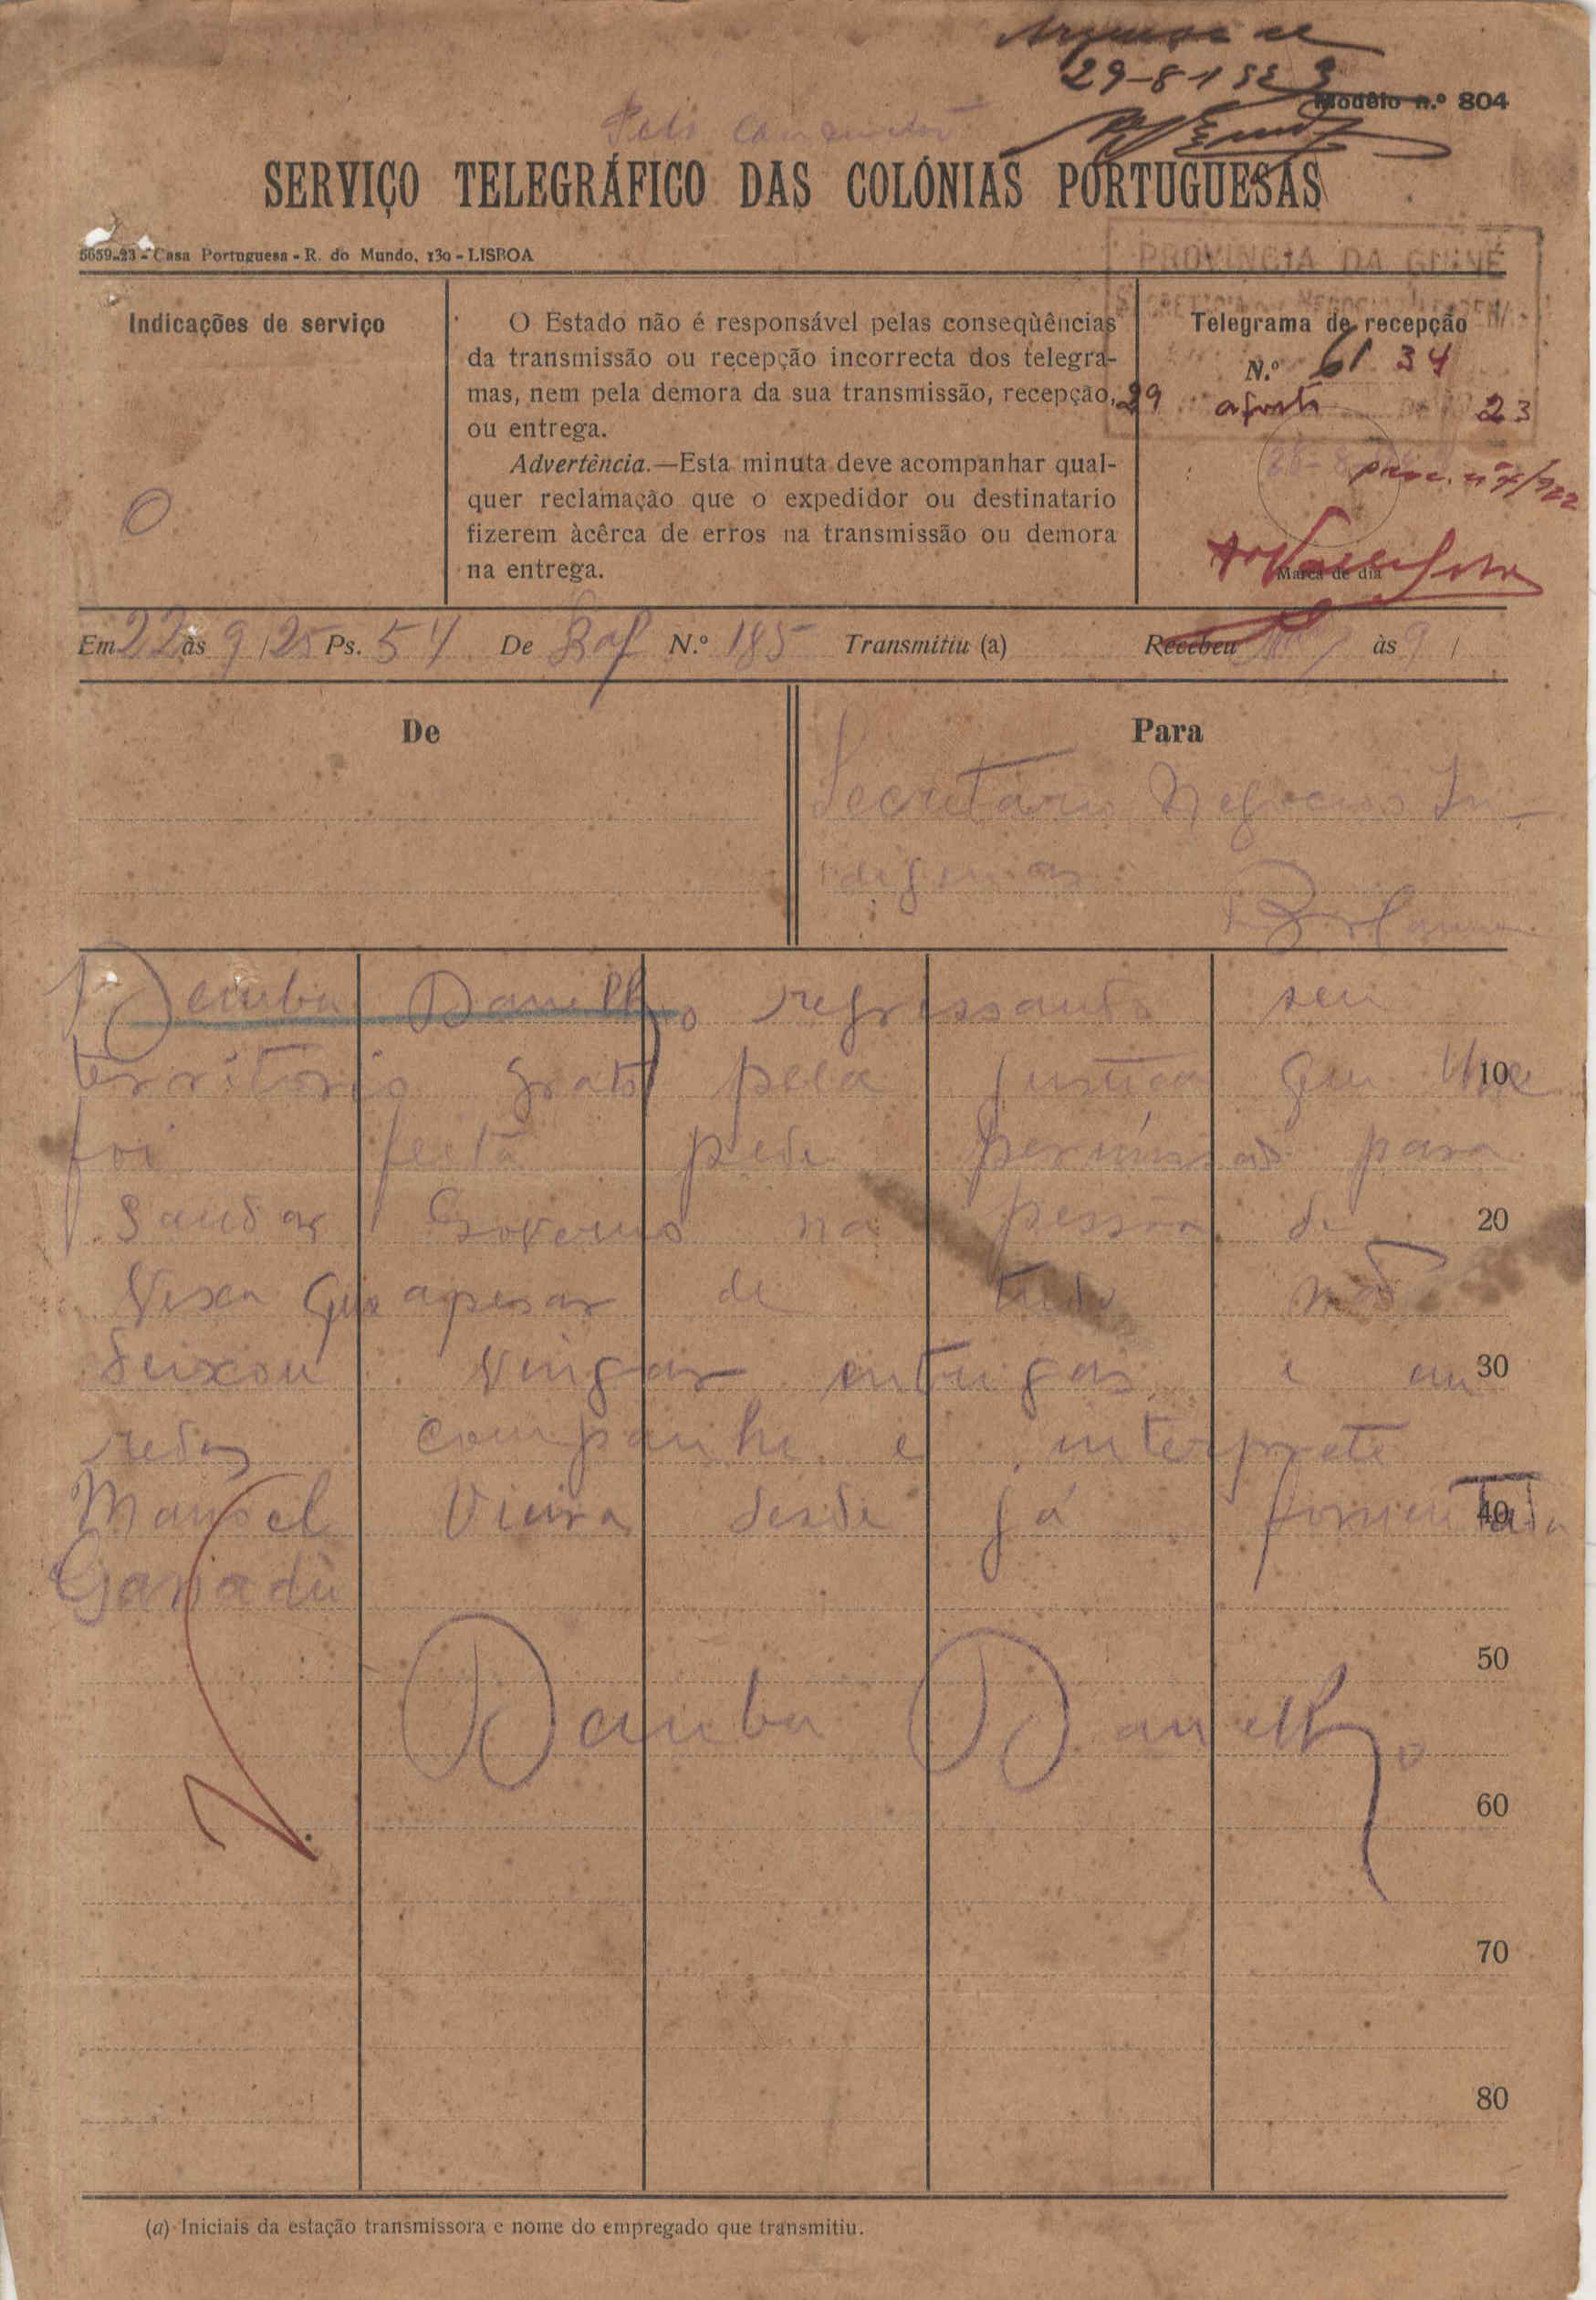 29-8-1923
Modêlo n.º 804
SERVIÇO TELEGRÁFICO DAS COLÓNIAS PORTUGUESAS
5659-23 - Casa Portuguesa - R. do Mundo, 130 - LISBOA
PROVINCIA DA GUINÉ
Indicações de serviço
O Estado não é responsável pelas conseqùências
da transmissão ou recepção incorrecta dos telegra-
mas, nem pela demora da sua transmissão, recepção,
ou entrega.
Advertência.—Esta minuta deve acompanhar qual-
quer reclamação que o expedidor ou destinatario
fizerem àcêrca de erros na transmissão ou demora
na entrega.
Telegrama de recepção
N.º 61 34
29 agosto 23
Marca de dia
Em 22 às 9/25 Ps. 54 De Baf N.º 185 Transmitiu (a) Recebeu às 9 /
De
Para
Secretario Negocios In-
digenas
Bolama
Demba Danelho regressando seu
territorio grato pela justiça que lhe
10
foi feita pede permissão para
saudar Governo na pessoa de
20
Vexa que apesar de tudo não
deixou vingar intrigas e en
30
redos companhe e interprete
Manoel Vieira desde já
40
Ganadú
50
Demba Danelho
60
70
80
(a) Iniciais da estação transmissora e nome do empregado que transmitiu.